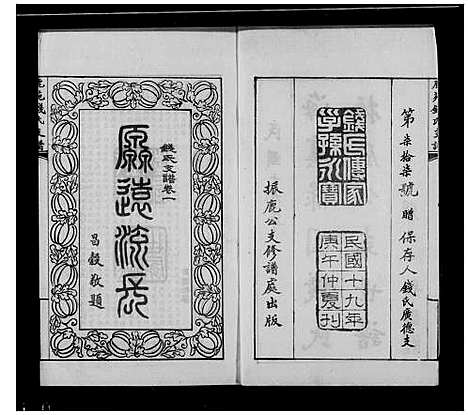 第柒拾柒號贈保存人錢氏廣德支
錢氏傳家
子孫永寶
民國十九年
庚午仲夏刊
振鹿公支修譜處出版
錢氏支譜卷一
源遠流長
昌穀敬題